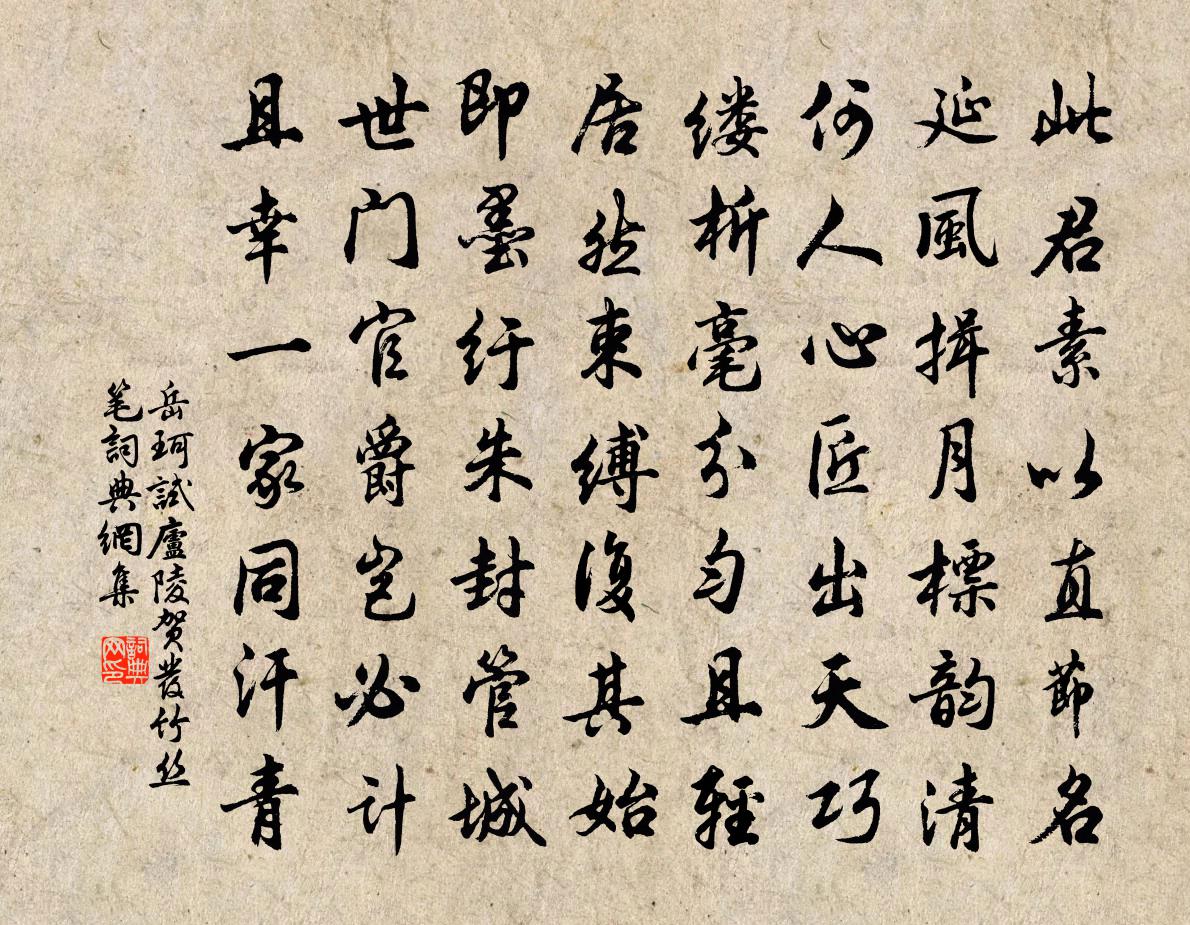 此君素以直節名
延風揖月標韵清
何人心匠出天巧
缕析毫分匀且輕
居然束縛復其始
即墨纡朱封管城
世门官爵岂必计
且幸一家同汗青
岳珂試廬陵贺發竹丝
笔詞典網集
詞典网印